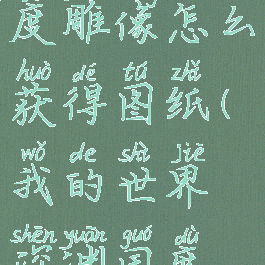 度雕像怎么
huò dé tú zhǐ
获得图纸(
wǒ de shì jiè
我的世界
shēn yuān guó dù
深渊国度